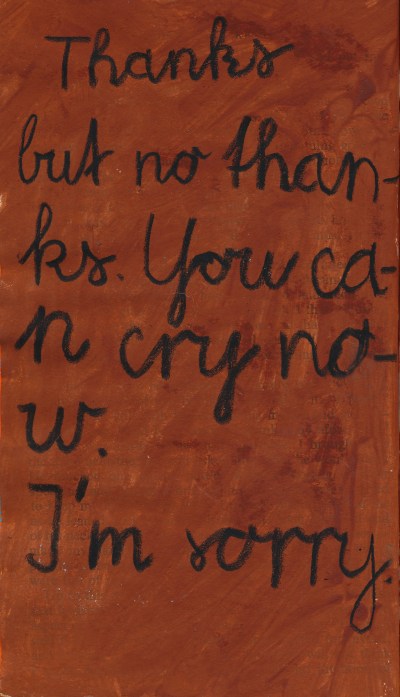 Thanks
but no than-
ks. You ca-
n cry no-
w.
I'm sorry.